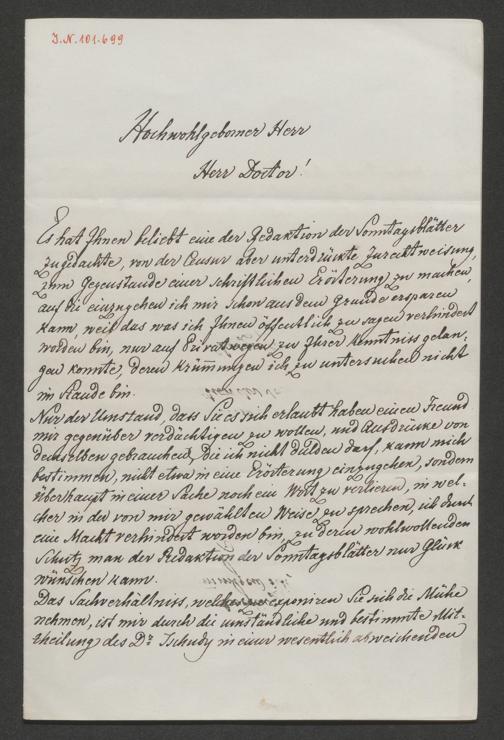 J.N.101.699
Hochwohlgeborner Herr
Herr Doctor!
Es hat Ihnen beliebt eine der Redaktion der Sonntagsblätter
zugedachte, von der Censur aber unterdrückte Zurechtweisung,
zum Gegenstande einer schriftlichen Erörterung zu machen,
auf die einzugehen ich mir schon aus dem Grunde ersparen
kann, weil das was ich Ihnen öffentlich zu sagen verhindert
worden bin, nur auf Privatwegen zu Ihrer Kenntniss gelan-
gen konnte, deren Krümmungen ich zu untersuchen nicht
im Stande bin.
Nur der Umstand, dass Sie es sich erlaubt haben einen Freund
mir gegenüber verdächtigen zu wollen, und Ausdrücke von
demselben gebrauchen, die ich nicht dulden darf, kann mich
bestimmen, nicht etwa in eine Erörterung einzugehen, sondern
überhaupt in einer Sache noch ein Wort zu verlieren, in wel-
cher in der von mir gewählten Weise zu sprechen, ich durch
eine Macht verhindert worden bin, zu deren wohlwollenden
Schutz man der Redaktion der Sonntagsblätter nur Glück
wünschen kann.
Das Sachverhältniss, welches zu exponiren Sie sich die Mühe
nehmen, ist mir durch die umständliche und bestimmte Mit-
theilung des Dr Tschudy in einer wesentlich abweichenden